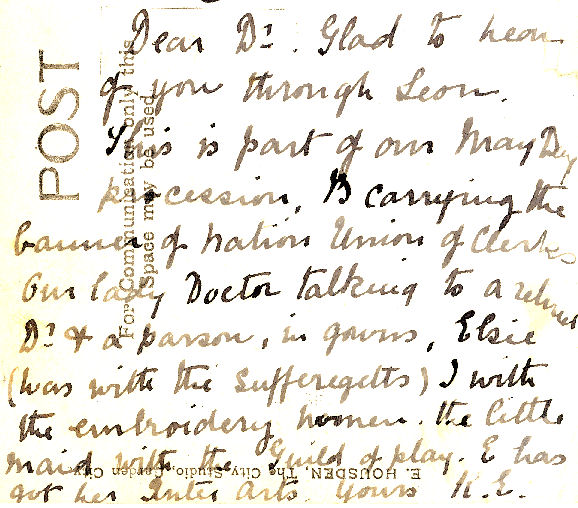 Dear Dr. Glad to hear
of you through Leon.
This is part of our May Day
procession, B carrying the
banner of Nation Union of Clerks
Our lady Doctor talking to a
Dr & a parson, in gowns, Elsie
(was with the Sufferegetts) I with
the embroidery women. the little
maid with the Guild of play. E has
got her Inter Arts. Yours K.E.
POST
For Communication only this
Space may be used
E. HOUSDEN, The City Studio, Garden City